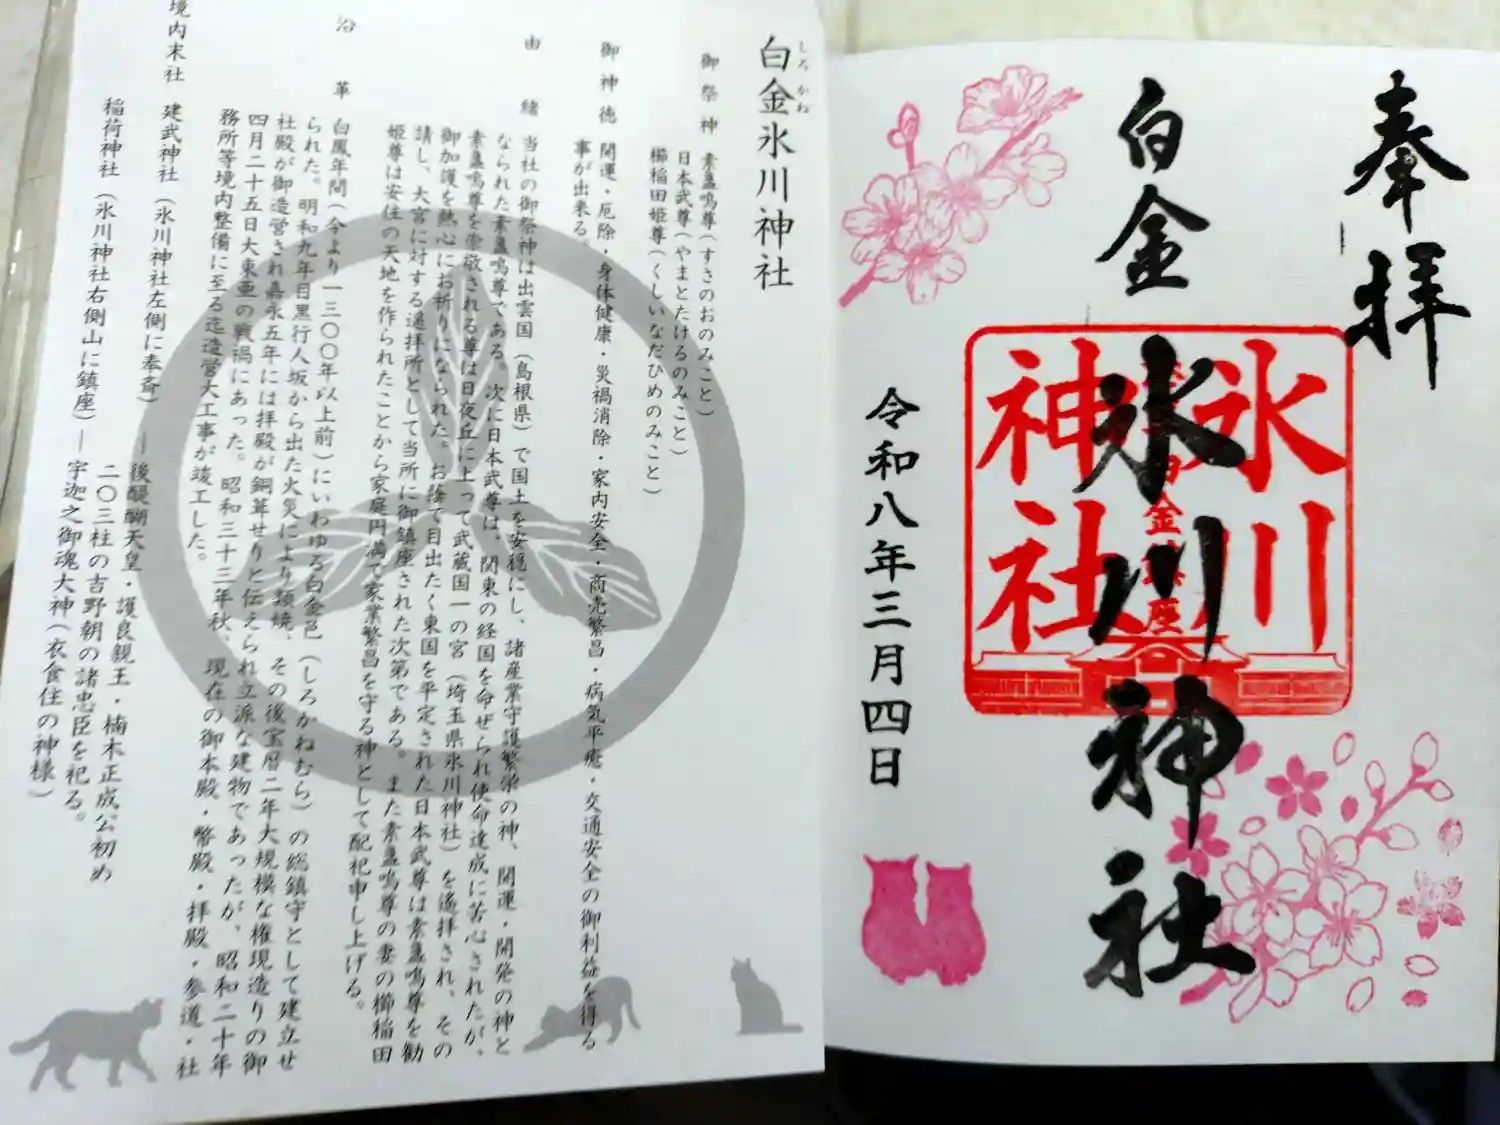 白金氷川神社
しろかね
御祭神 素盞嗚尊(すさのおのみこと)
日本武尊(やまとたけるのみこと)
櫛稲田姫尊(くしいなだひめのみこと)
御神徳 開運・厄除・身体健康・災禍消除・家内安全・商売繁昌・病気平癒・交通安全の御利益を得る
事が出来る。
由緒 当社の御祭神は出雲国(島根県)で国土を安穏にし、諸産業守護繁栄の神、開運・開発の神と
なられた素盞嗚尊である。次に日本武尊は、関東の経国を命ぜられ使命達成に苦心されたが、
素盞嗚尊を崇敬される尊は日夜丘に上って武蔵国一の宮(埼玉県氷川神社)を遙拝され、その
御加護を熱心にお祈りになられた。お蔭で目出たく東国を平定された日本武尊は素盞嗚尊を勧
請し、大宮に対する遥拝所として当所に御鎮座された次第である。また素盞嗚尊の妻の櫛稲田
姫尊は安住の天地を作られたことから家庭円満で家業繁昌を守る神として配祀申し上げる。
沿革 白鳳年間(今より一三〇〇年以上前)にいわゆる白金邑(しろかねむら)の総鎮守として建立せ
られた。明和九年目黒行人坂から出た火災により類焼、その後宝暦二年大規模な権現造りの御
社殿が御造営され嘉永五年には拝殿が銅葺せりと伝えられ立派な建物であったが、昭和二十年
四月二十五日大東亜の戦禍にあった。昭和三十三年秋、現在の御本殿・幣殿・拝殿・参道・社
務所等境内整備に至る迄造営大工事が竣工した。
境内末社 建武神社(氷川神社左側に奉斎)―後醍醐天皇・護良親王・楠木正成公初め
二〇三柱の吉野朝の諸忠臣を祀る。
稲荷神社(氷川神社右側山に鎮座)―宇迦之御魂大神(衣食住の神様)
奉拝
白金氷川神社
氷川
神社
令和八年三月四日